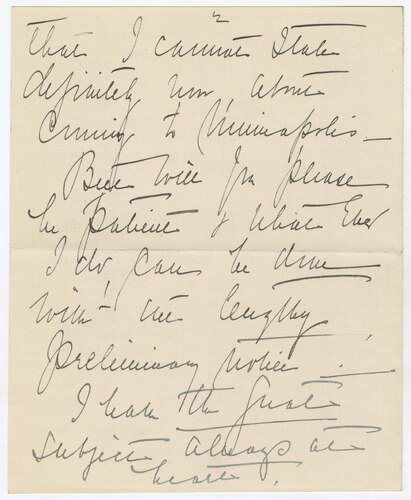 2
that I cannot State
definitely now about
Coming to Minneapolis –
But will you please
be patient & what Ever
I do, can be done
with out lengthy
preliminary notice – !
I have the Great
subject always at
heart.